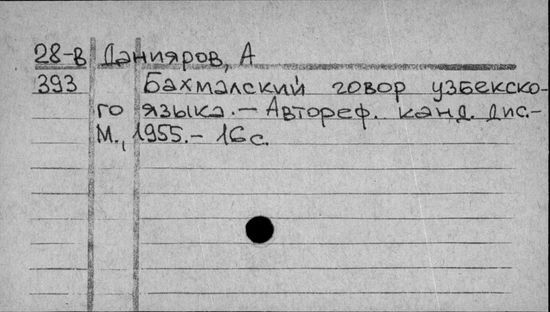 28-в Данияров, А
393 Бахмалский говор узбекско-
го языка.— Автореф. канд. дис.-
М., 1955.- 16 с.